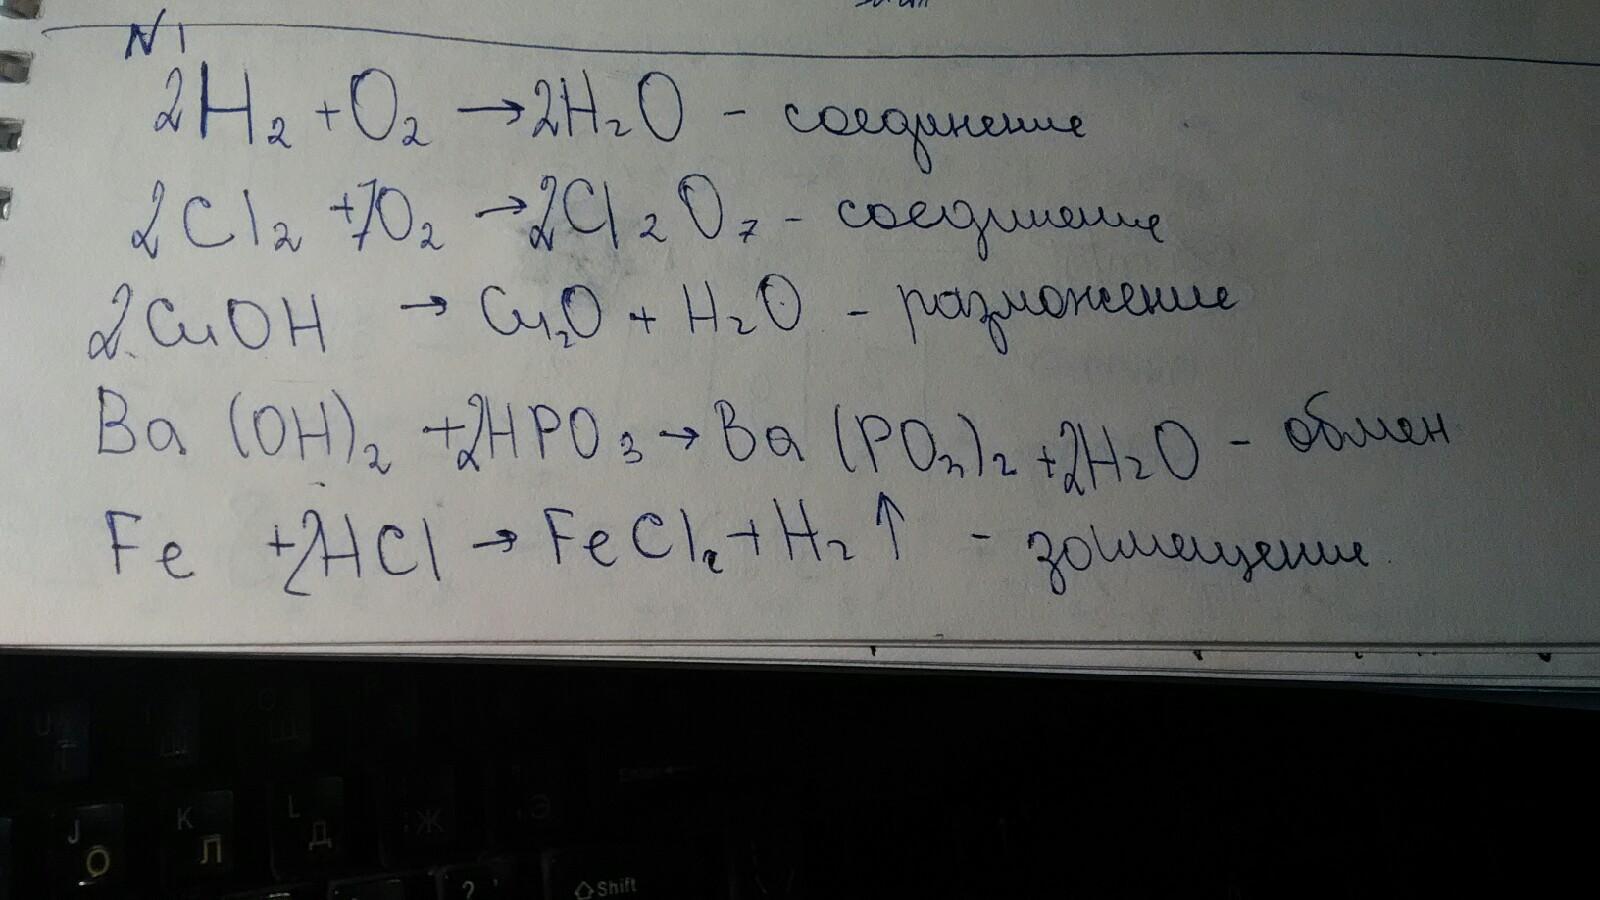 N 1
2H₂ + O₂ → 2H₂O - соединение
2Cl₂ + 7O₂ → 2Cl₂O₇ - соединение
2CuOH → Cu₂O + H₂O - разложение
Ba(OH)₂ + 2HPO₃ → Ba(PO₃)₂ + 2H₂O - обмен
Fe + 2HCl → FeCl₂ + H₂↑ - замещение
J О
K Л
L Д
Ж
Э
? ,
⇧Shift